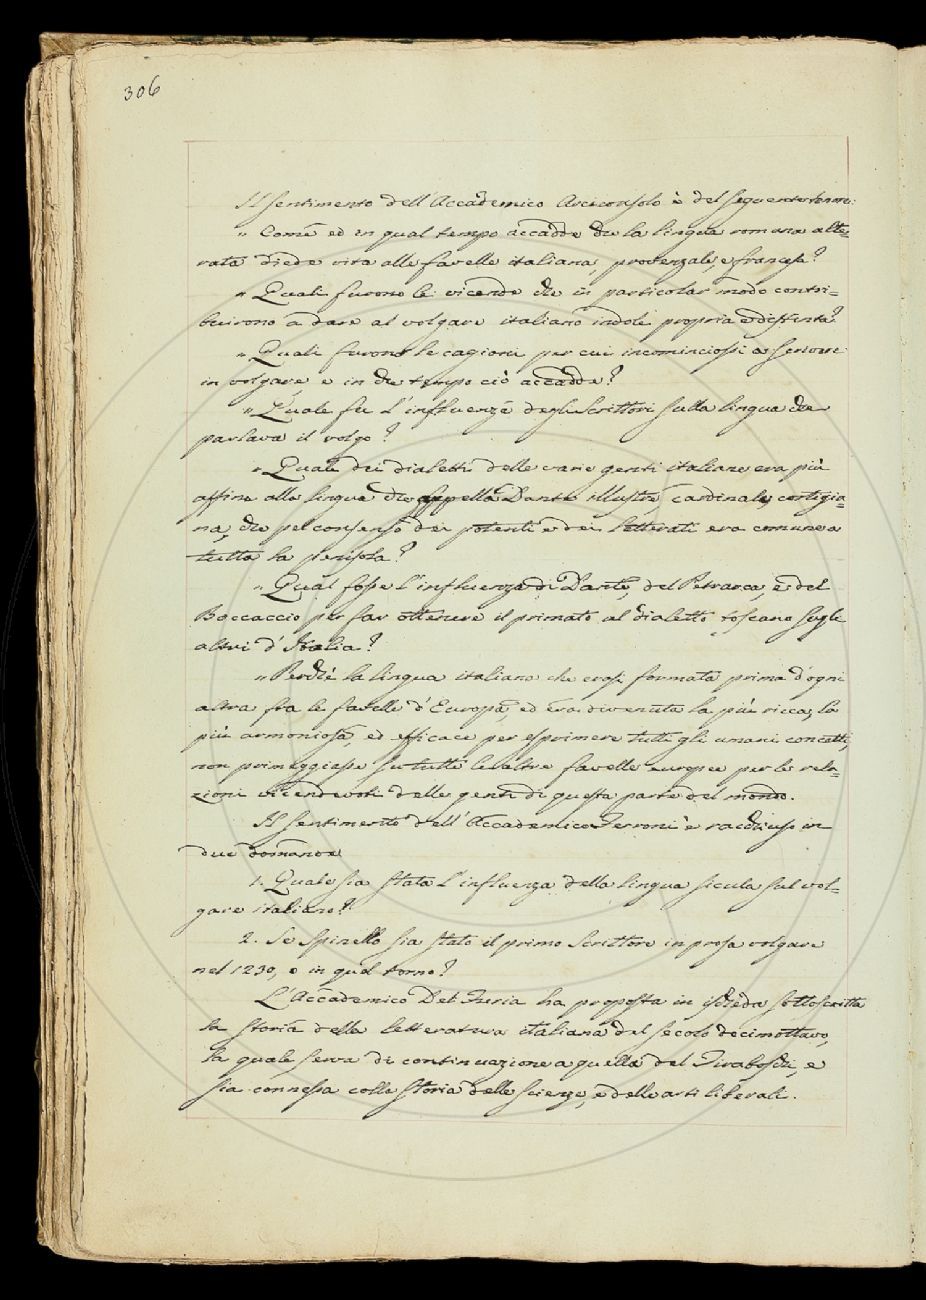 306
Il sentimento dell'Accademico Arciconsolo è del seguente tenore:
" Come ed in qual tempo accadde che la lingua romana alte=
rata diede vita alle favelle italiana, provenzale, e francese?
" Quali furono le vicende che in particolar modo contri=
buirono a dare al volgare italiano indole propria e distinta?
" Quali furono le cagioni per cui incominciossi a scrivere
in volgare, e in che tempo ciò accadde?
" Quale fu l'influenza degli Scrittori sulla lingua che
parlava il volgo?
" Quale dei dialetti delle varie genti italiane era più
affine alla lingua che appella Dante illustre, cardinale, cortigia=
na, che pel consenso dei potenti e dei letterati era comune a
tutta la penisola?
" Qual fosse l'influenza di Dante, del Petrarca, e del
Boccaccio per far ottenere il primato al dialetto toscano sugli
altri d'Italia?
" Perchè la lingua italiana che erasi formata prima d'ogni
altra fra le favelle d'Europa, ed era divenuta la più ricca, la
più armoniosa, ed efficace per esprimere tutti gli umani concetti,
non primeggiasse su tutte le altre favelle europee per le rela=
zioni vicendevoli delle genti di questa parte del mondo.
Il sentimento dell'Accademico Ferroni è racchiuso in
due domande
1. Quale sia stata l'influenza della lingua sicula sul vol=
gare italiano?
2. Se Spinello sia stato il primo Scrittore in prosa volgare
nel 1230, o in quel torno?
L'Accademico Del Furia ha proposta in ischeda sottoscritta
la storia della letteratura italiana del secolo decimottavo,
la quale serva di continuazione a quella del Tiraboschi, e
sia connessa colla storia delle scienze, e delle arti liberali.